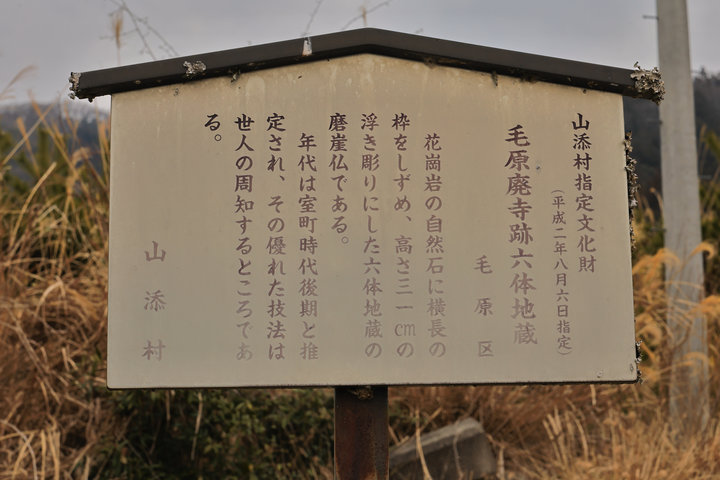 山添村指定文化財
(平成二年八月六日指定)
毛原廃寺跡六体地蔵
毛原区
花崗岩の自然石に横長の
枠をしずめ、高さ三一cmの
浮き彫りにした六体地蔵の
磨崖仏である。
年代は室町時代後期と推
定され、その優れた技法は
世人の周知するところであ
る。
山添村